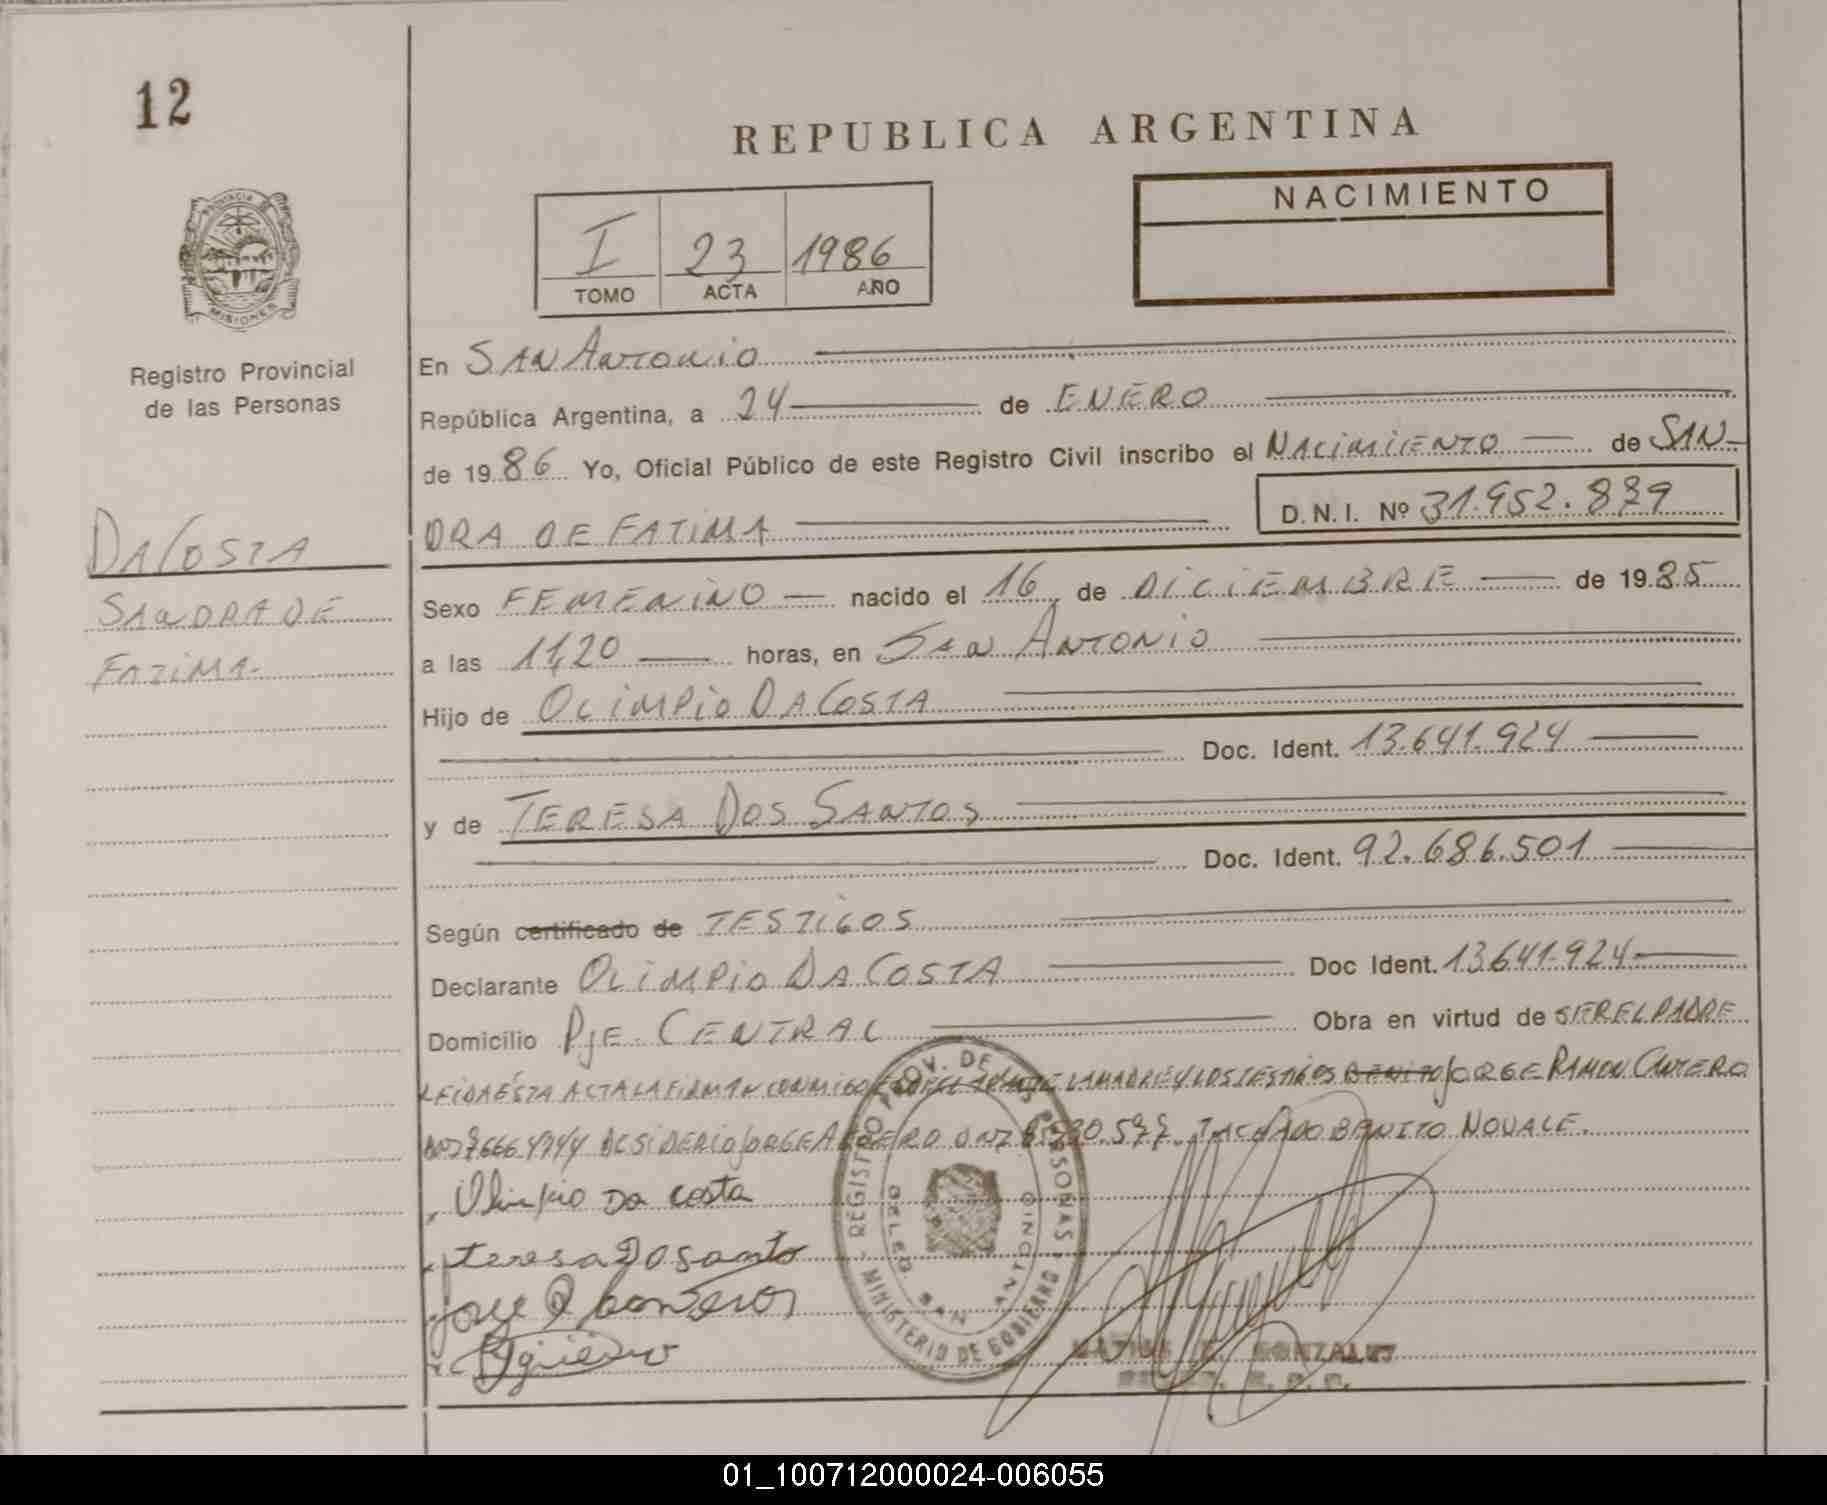 12
REPUBLICA ARGENTINA
NACIMIENTO
I 23 1986
TOMO ACTA AÑO
PROVINCIA DE
MISIONES
Registro Provincial
de las Personas
En SAN ANTONIO
República Argentina, a 24 de ENERO
de 19 86 Yo, Oficial Público de este Registro Civil inscribo el NACIMIENTO de SAN-
DRA DE FATIMA
D.N.I. Nº 31.952.839
DA COSTA
SANDRA DE
FATIMA-
Sexo FEMENINO nacido el 16 de DICIEMBRE de 1985
a las 11,20 horas, en SAN ANTONIO
Hijo de OLIMPIO DA COSTA
Doc. Ident. 13.641.924
y de TERESA DOS SANTOS
Doc. Ident. 92.686.501
Según certificado de TESTIGOS
Declarante OLIMPIO DA COSTA Doc Ident. 13.641.924
Domicilio PJE. CENTRAL Obra en virtud de SER EL PADRE
LEIDA ESTA ACTA LA FIRMAN CONMIGO LA MADRE Y LOS TESTIGOS BENITO JORGE RAMON CANTERO
DESIDERIO JORGE AGUERO TACHADO BENITO NO VALE.
Olimpio Da costa
teresa Do santo
REGISTRO PROV. DE LAS PERSONAS
MINISTERIO DE GOBIERNO
DELEG. SAN ANTONIO
GONZALEZ
01_100712000024-006055